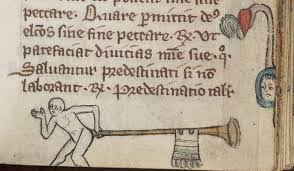 peccare. Quare ꝑmittit de⁹
elc̄os sine fine peccare. R̄. Vt
patefaciat diuicias mīe sue. q̄.
Saluantur predestinati si nō
laborant. R̄. Predestinatio tali⁹